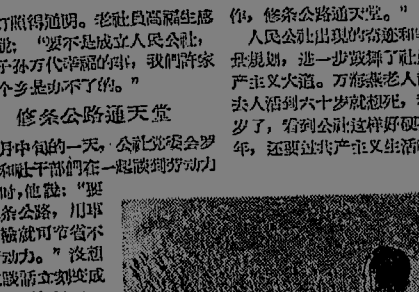 灯照得通明。老社員高福生感
說："要不是成立人民公社，
子孙万代幸福的事，我們許家
个乡是办不了的。"
修条公路通天堂
月中旬的一天，公社党委会罗
和社干部們在一起談到劳动力
时，他說："要
条公路，用車
輸就可节省不
劳动力。"没想
句話立刻变成
你，修条公路通天堂。"
人民公社出現的奇迹和
景規划，进一步鼓舞了社
产主义大道。万海燕老人
夫人活到六十岁就想死，
岁了，看到公社这样好硬
年，还要过共产主义生活